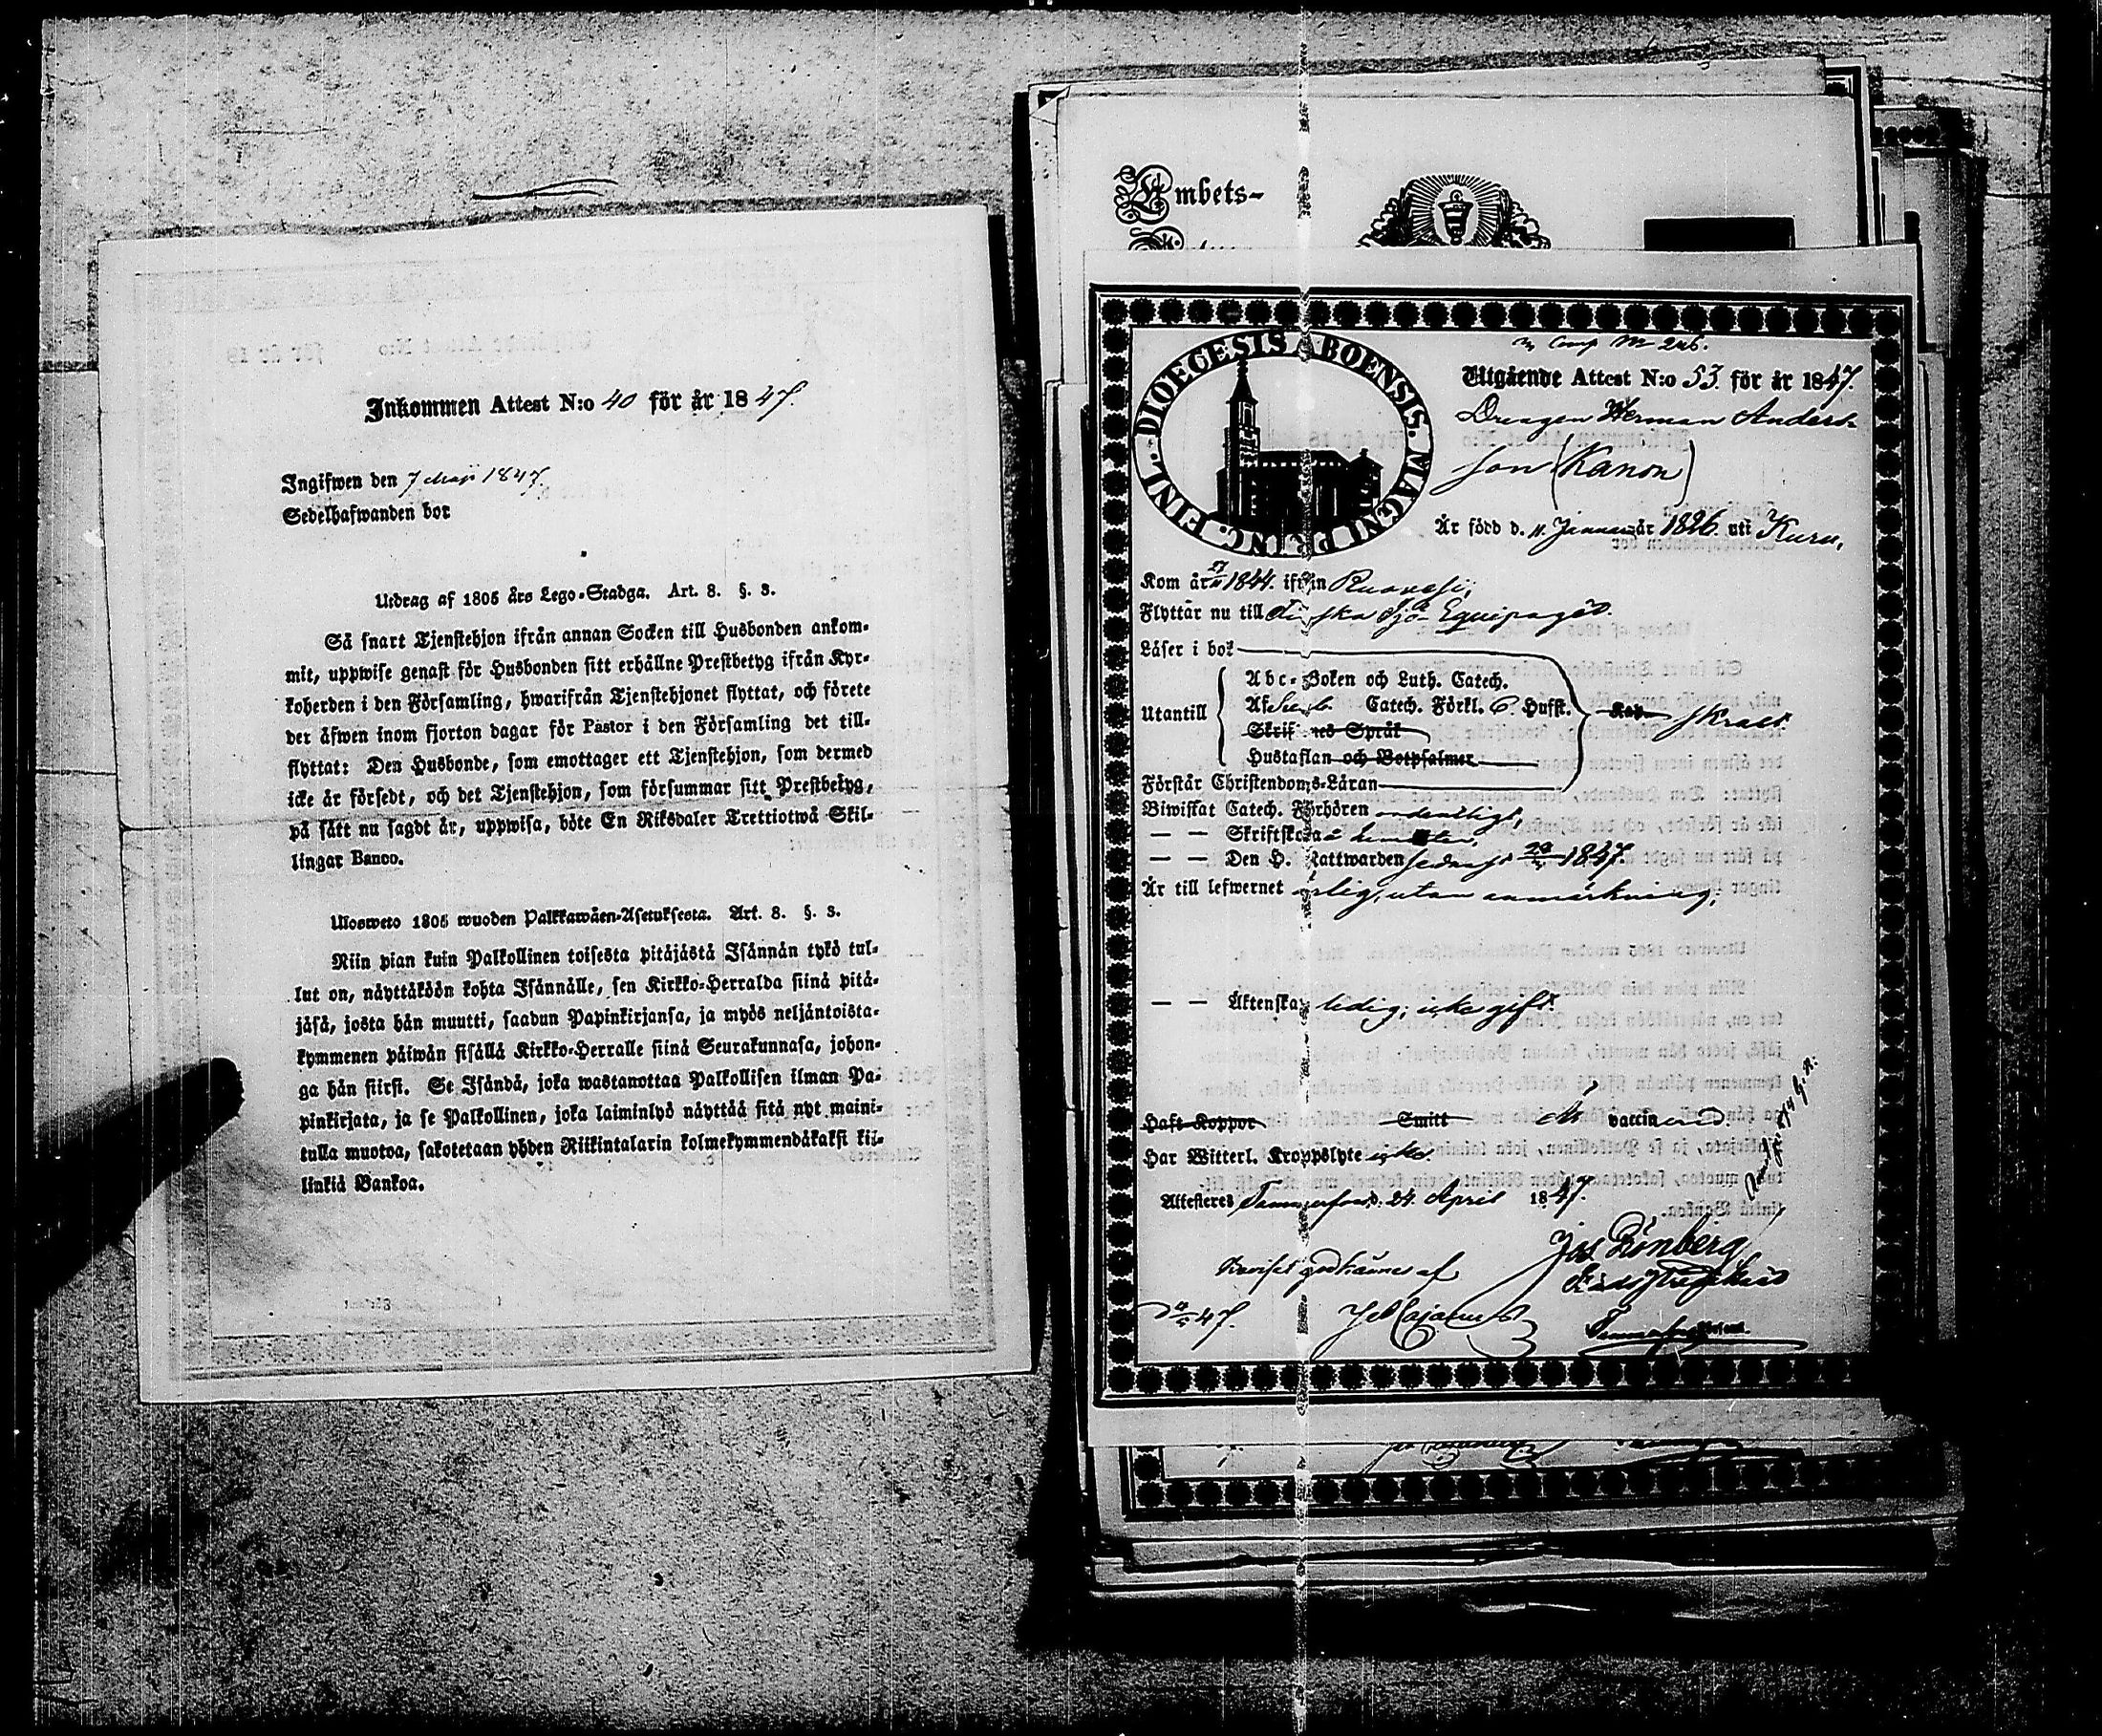 Inkommen Attest N:o 40 för år 1847.
Ingifwen den 7 Maji 1847
Sedelhafwanden bor
Utdrag af 1805 års Lego-Stadga. Art. 8. §. 3.
Så snart Tjenstehjon ifrån annan Socken till Husbonden ankom-
mit, uppwise genast för Husbonden sitt erhållne Prestbetyg ifrån Kyr-
koherden i den Församling, hwarifrån Tjenstehjonet flyttat, och förete
det äfwen inom fjorton dagar för Pastor i den Församling det till-
flyttat: Den Husbonde, som emottager ett Tjenstehjon, som dermed
icke är försedt, och det Tjenstehjon, som försummar sitt Prestbetyg,
på sätt nu sagdt är, uppwisa, böte En Riksdaler Trettiotwå Skil-
lingar Banco.
Ulosweto 1805 wuoden Palkkawäen-Asetuksesta. Art. 8. §. 3.
Niin pian kuin Palkollinen toisesta pitäjästä Isännän tykö tul-
lut on, näyttäköön kohta Isännälle, sen Kirkko-Herralda siinä pitä-
jäsä, josta hän muutti, saadun Papinkirjansa, ja myös neljäntoista-
kymmenen päiwän sisällä Kirkko-Herralle siinä Seurakunnasa, johon-
ga hän siirsi. Se Isändä, joka wastanottaa Palkollisen ilman Pa-
pinkirjata, ja se Palkollinen, joka laiminlyö näyttää sitä nyt maini-
tulla muotoa, sakotetaan yhden Riikintalarin kolmekymmendäkaksi kil-
linkiä Bankoa.
Embets-
DIOECESIS ABOENSIS. MAGNI PRINC. FINL.
Comp № 246.
Utgående Attest N:o 53. för år 1847.
Dragon Herman Anders-
son (Kanon)
Är född d. 11 Januari år 1826. uti Kuru,
Kom år 27/11 1844. ifrån Ruovesi,
Flyttar nu till Finska Sjö-Equipaget.
Läser i bok
Utantill
Abc-Boken och Luth. Catech.
Af Sveb. Catech. Förkl. 6. Hufst.
Skriftenes Språk
Hustaflan och Botpsalmer
Förstår Christendoms-Läran
Biwistat Catech. Förhören ordentligt,
— — Skriftskola
— — Den H. Nattwarden sednast 1847.
Är till lefwernet ärlig, utan anmärkning;
— — Äktenskap ledig; icke gift.
Haft Koppor Smitt är vaccinerad.
Har Witterl. Kroppslyte icke.
Attesteres Tammerfors d. 24. April 1847.
Jos Grönberg
godkännes af
47.